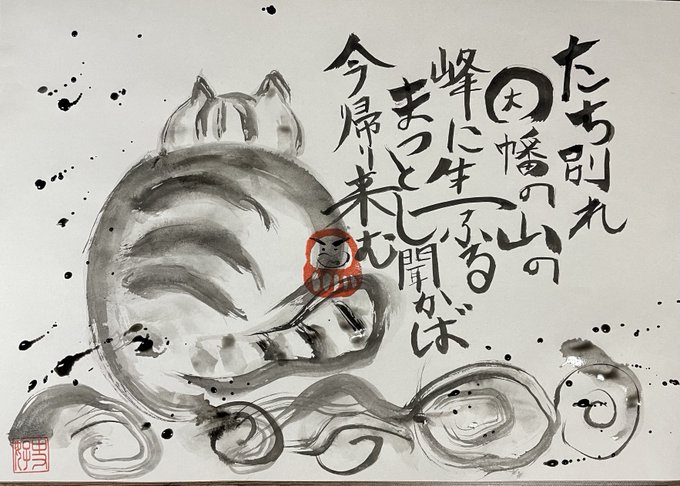 たち別れ
因幡の山の
峰に生ふる
まつとし聞かば
今帰り来む